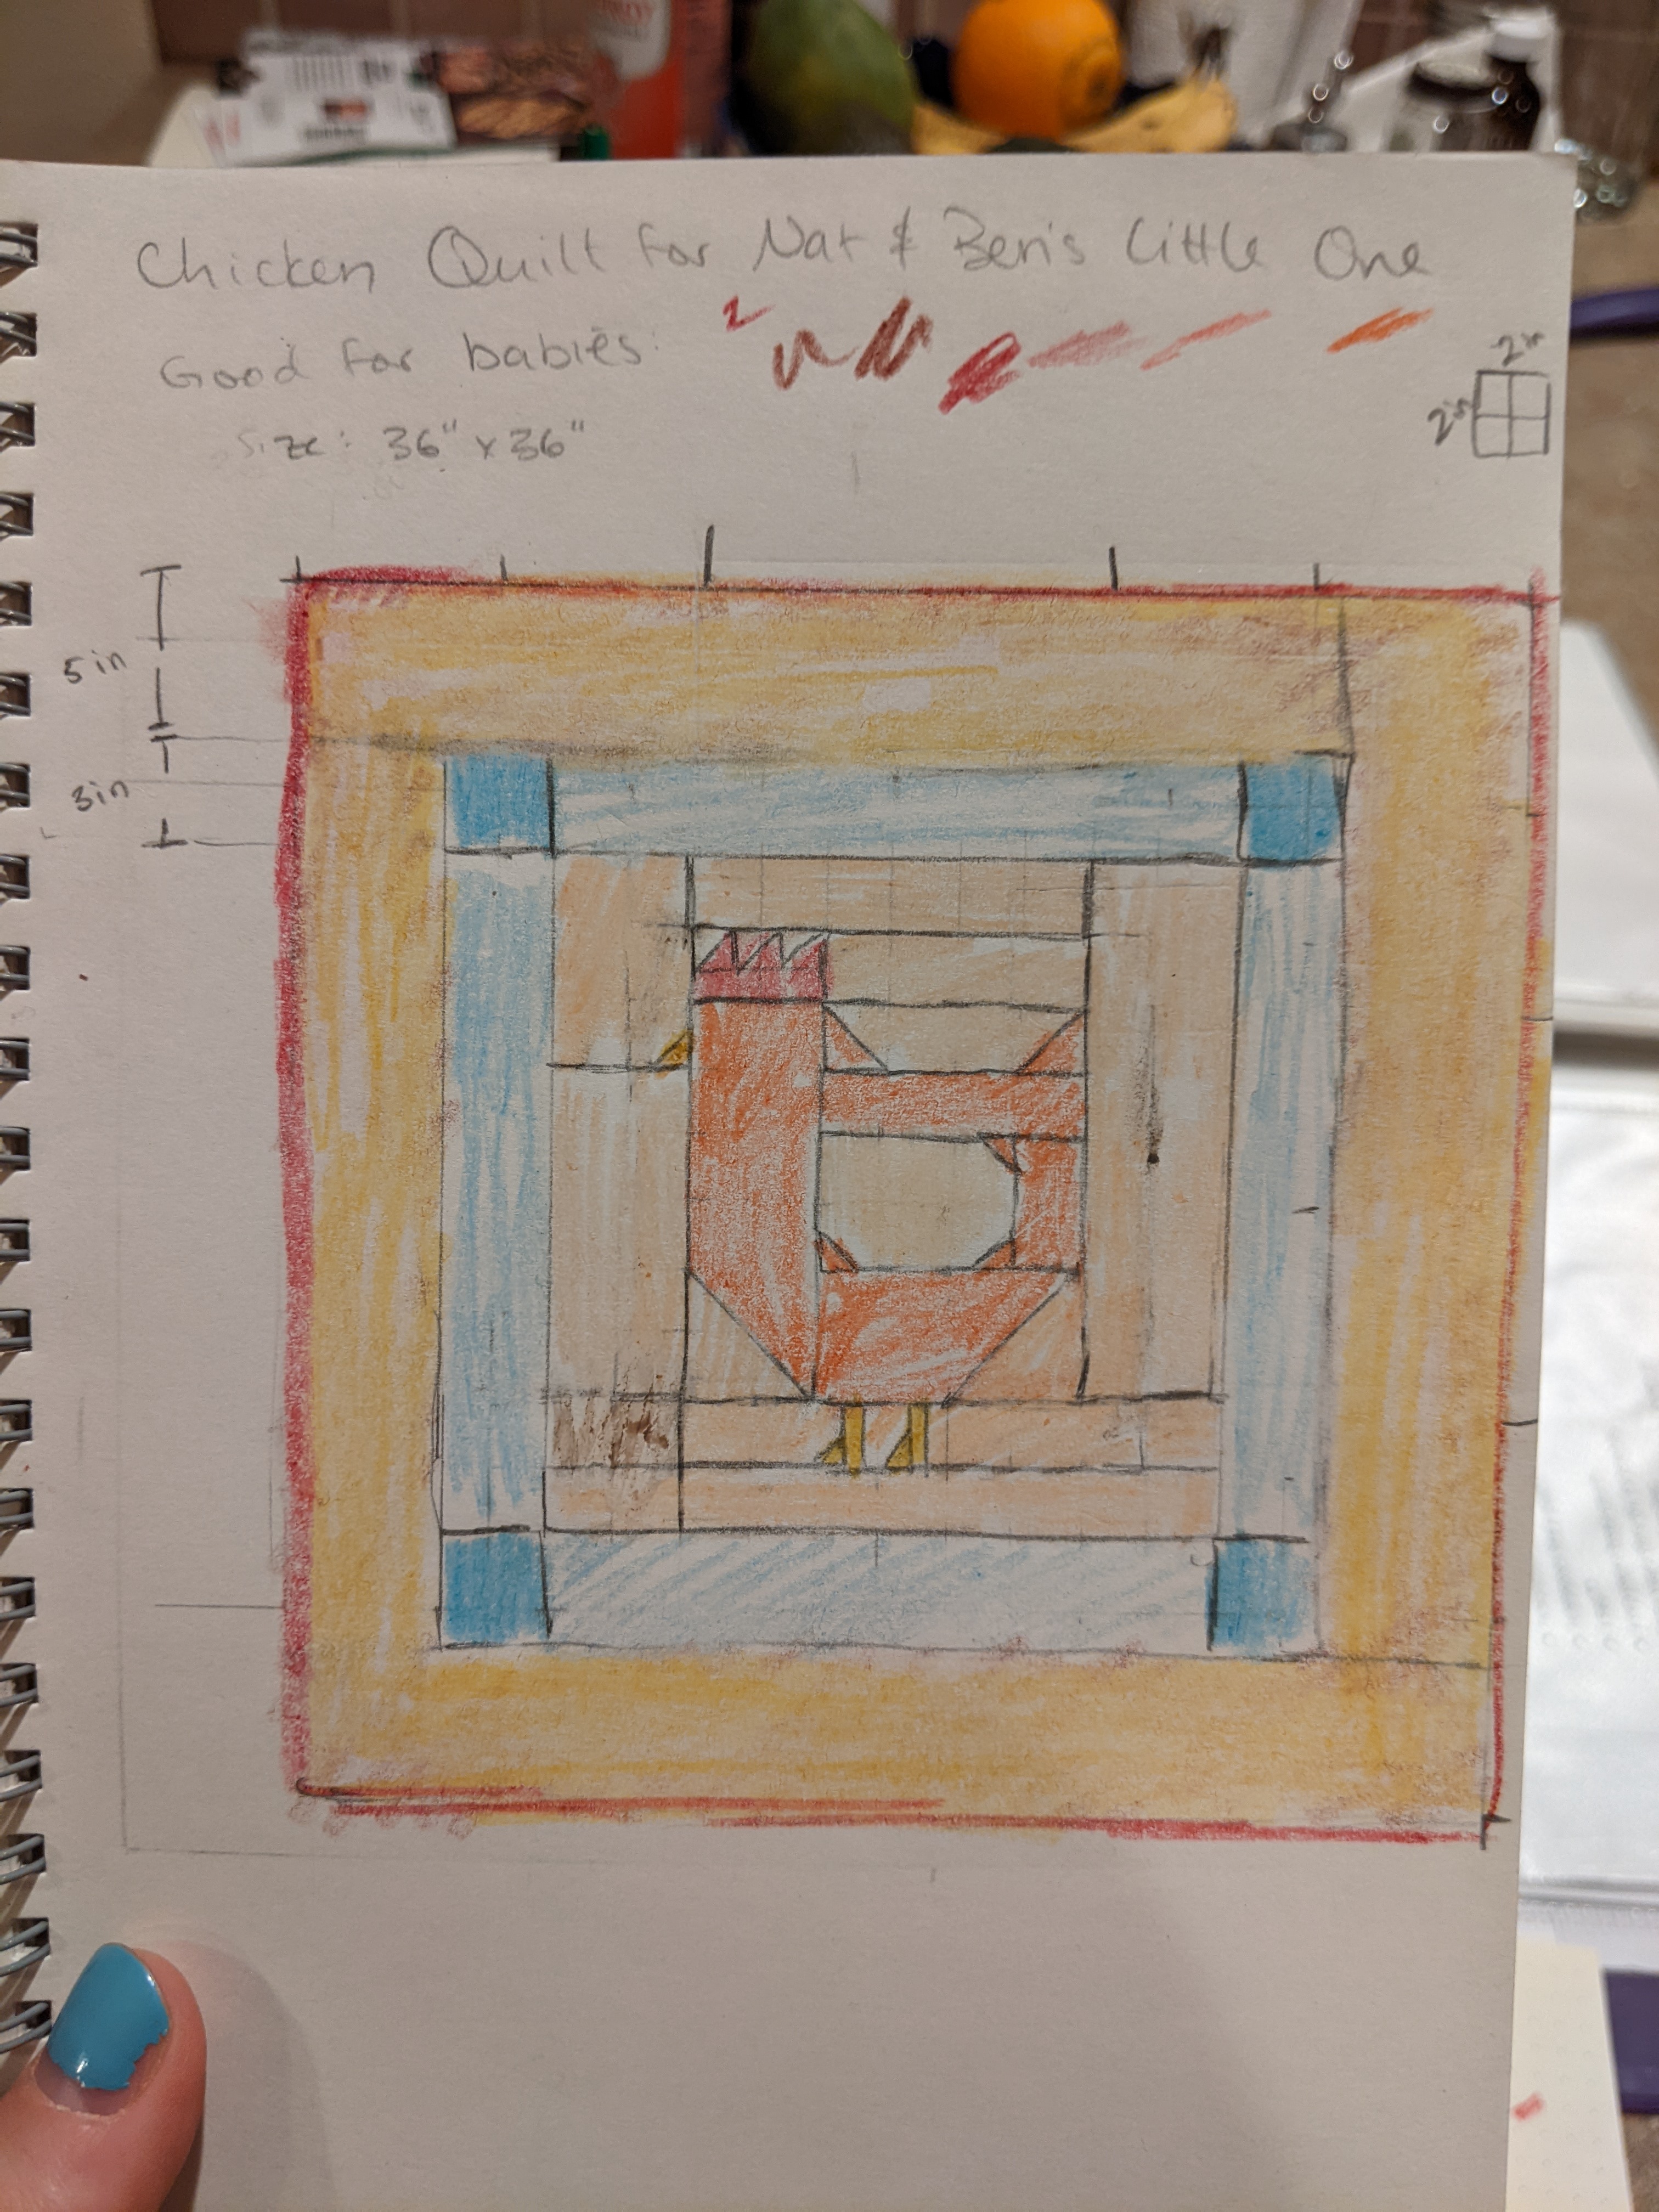 Chicken Quilt for Nat & Ben's Little One
Good for babies:
Size: 36" x 36"
2in
2in
5in
3in